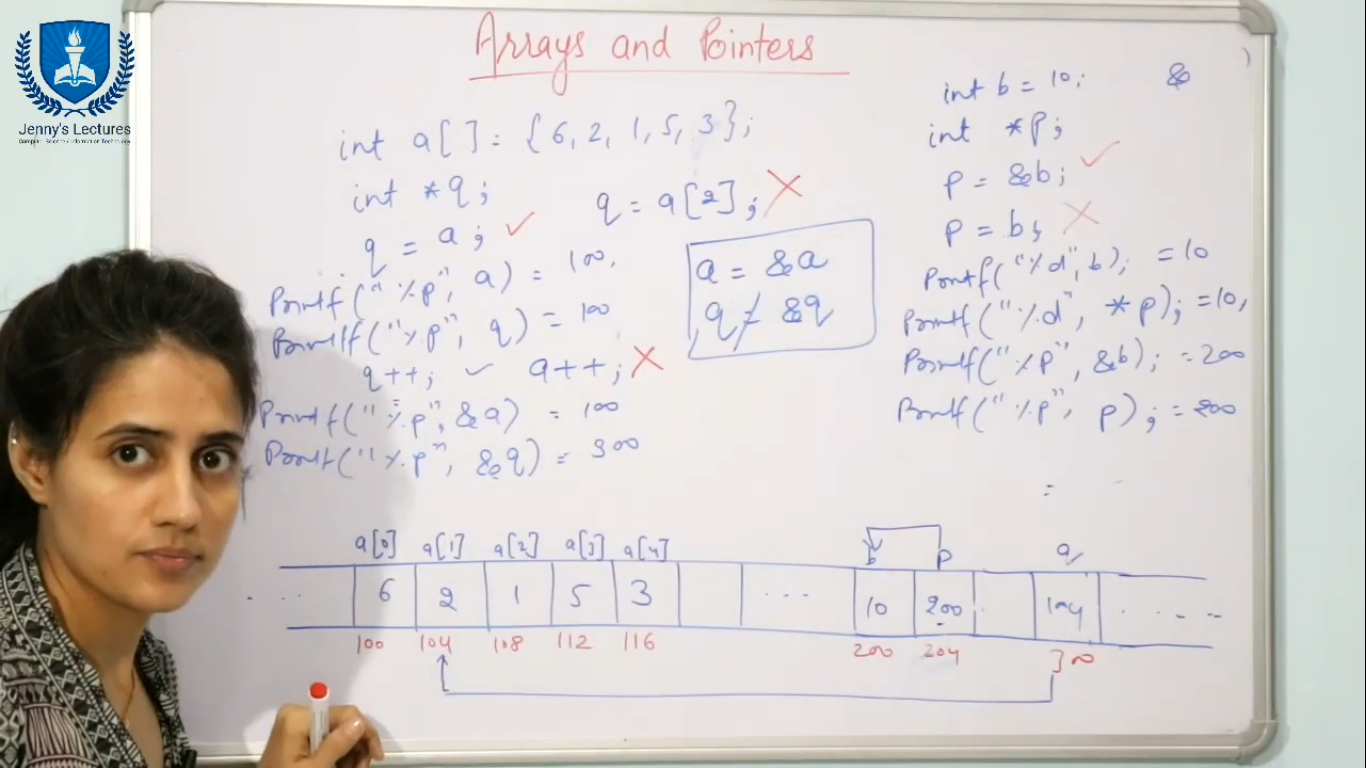 Jenny's Lectures
Computer Science & Information Technology
Arrays and Pointers
int a[ ] = {6, 2, 1, 5, 3};
int *q;
q = a[2]; ✗
q = a; ✓
a = &a
q ≠ &q
Printf("%p", a) = 100.
Printf("%p", q) = 100
q++; ✓ a++; ✗
Printf("%p", &a) = 100
Printf("%p", &q) = 300
int b = 10; &
int *p;
p = &b; ✓
p = b; ✗
Printf("%d", b); = 10
Printf("%d", *p); = 10,
Printf("%p", &b); = 200
Printf("%p", p); = 200
=
a[0] a[1] a[2] a[3] a[4] b p q
.... 6 2 1 5 3 ... 10 200 104 ....
100 104 108 112 116 200 204 300